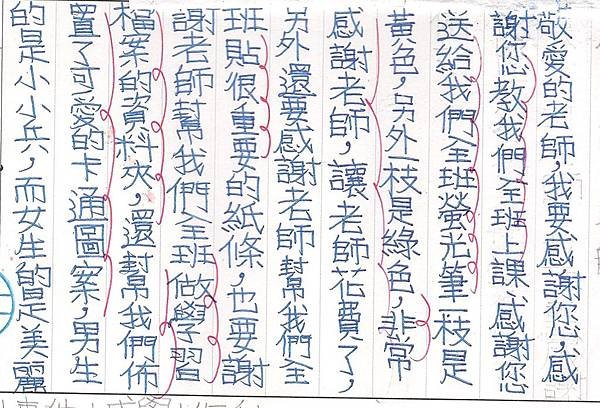 敬愛的老師，我要感謝您，感
謝您教我們全班上課、感謝您
送給我們全班螢光筆一枝是
黃色，另外一枝是綠色，非常
感謝老師，讓老師花費了，
另外還要感謝老師幫我們全
班貼很重要的紙條，也要謝
謝老師幫我們全班做學習
檔案的資料夾，還幫我們佈
置了可愛的卡通圖案，男生
的是小小兵，而女生的是美麗